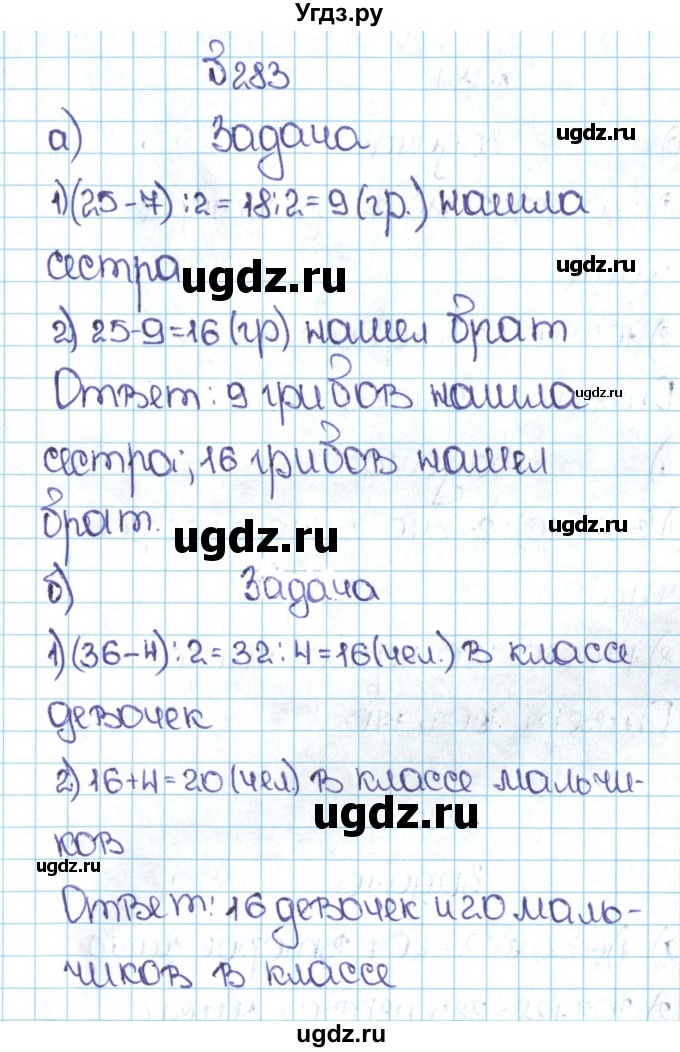 Угдз.ру
283
а) Задача
ugdz.ru
1)(25-7):2=18:2=9(гр.) нашла
сестра
ugdz.ru
ugdz.ru
2) 25-9=16(гр) нашел брат
Ответ: 9 грибов нашла
ugdz.ru
сестра; 16 грибов нашел
брат.
ugdz.ru
ugdz.ru
б) Задача
1)(36-4):2=32:4=16(чел.) в классе
девочек
2) 16+4=20(чел) в классе мальчи-
ugdz.ru
ков
ugdz.ru
Ответ: 16 девочек и 20 маль-
чиков в классе
ugdz.ru